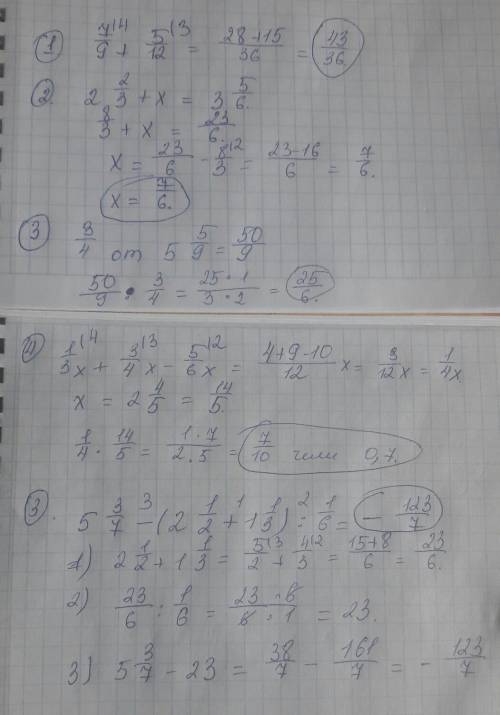 ① 7/9 |4 + 5/12 |3 = 28+15/36 = 43/36.
②. 2 2/3 + x = 3 5/6.
8/3 + x = 23/6.
x = 23/6 - 8/3 |2 = 23-16/6 = 7/6.
x = 7/6.
③ 3/4 от 5 5/9 = 50/9
50/9 · 3/4 = 25·1/3·2 = 25/6.
④ 1/3 |4 x + 3/4 |3 x - 5/6 |2 x = 4+9-10/12 x = 3/12 x = 1/4 x
x = 2 4/5 = 14/5.
1/4 · 14/5 = 1·7/2·5 = 7/10 или 0,7.
③. 5 3/7 3 - (2 1/2 1 + 1 1/3) 2 : 1/6 = - 123/7
1) 2 1/2 + 1 1/3 = 5/2 |3 + 4/3 |2 = 15+8/6 = 23/6.
2) 23/6 : 1/6 = 23·6/6·1 = 23.
3) 5 3/7 - 23 = 38/7 - 161/7 = - 123/7